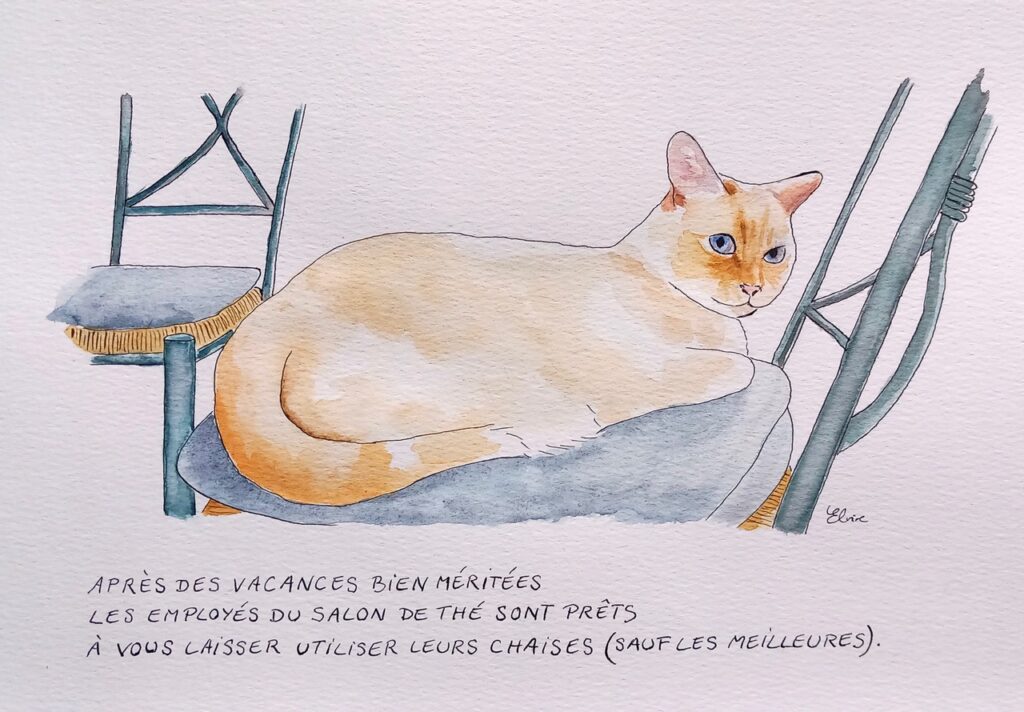 Elvire
APRÈS DES VACANCES BIEN MÉRITÉES
LES EMPLOYÉS DU SALON DE THÉ SONT PRÊTS
À VOUS LAISSER UTILISER LEURS CHAISES (SAUF LES MEILLEURES).